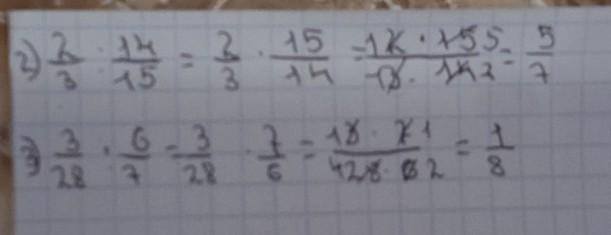 2) 2/3 : 14/15 = 2/3 · 15/14 = 12 · 155/13 · 147 = 5/7
3) 3/28 : 6/7 = 3/28 · 7/6 = 13 · 71/428 · 62 = 1/8